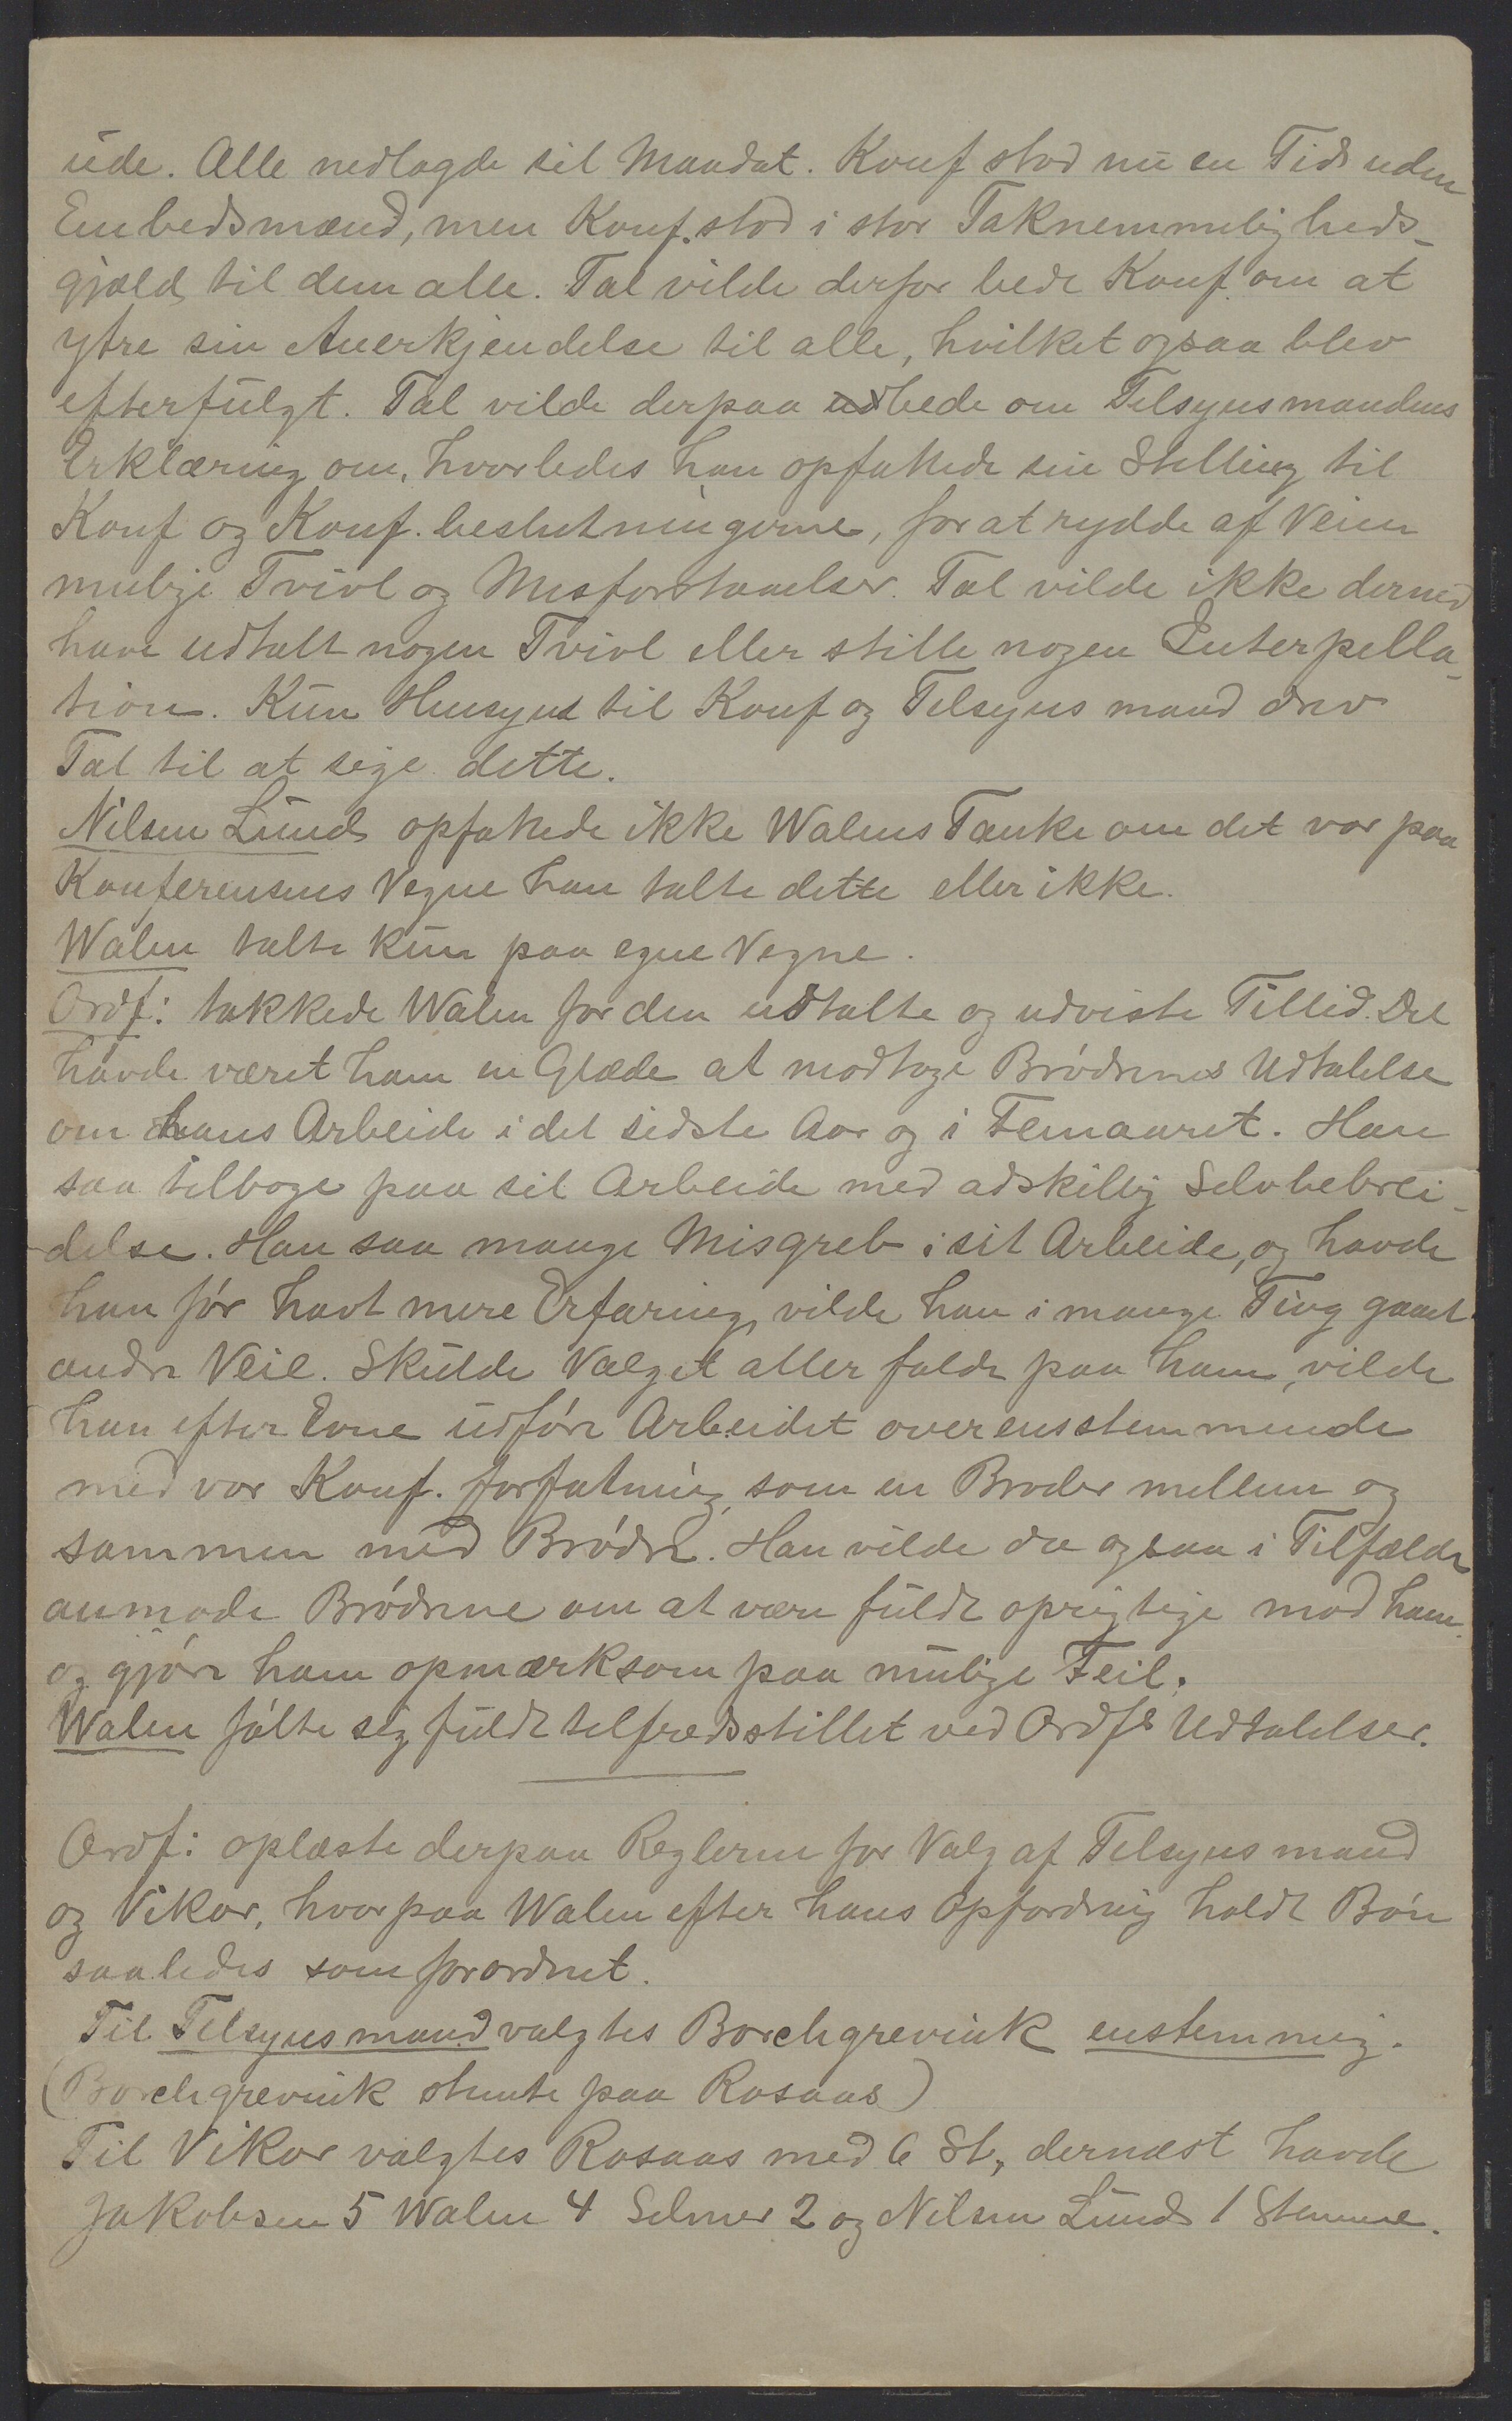 ude. Alle nedlagde sit Mandat. Konf stod nu en Tid uden
Embedsmænd, men Konf. stod i stor Taknemmeligheds-
gjæld til dem alle. Tal vilde derfor bede Konf. om at
ytre sin Anerkjendelse til alle, hvilket ogsaa blev
efterfulgt. Tal vilde derpaa udbede om Tilsynsmandens
Erklæring om, hvorledes han opfattede sin Stilling til
Konf og Konf. beslutningerne, for at rydde af Veien
mulige Tvivl og Misforstaaelser. Tal vilde ikke dermed
have udtalt nogen Tvivl eller stille nogen Interpella-
tion. Kun Hensynet til Konf og Tilsynsmand drev
Tal til at sige dette.
Nilsen Lund opfattede ikke Walens Tanke om det var paa
Konferensens Vegne han talte dette eller ikke.
Walen talte kun paa egne Vegne.
Ordf: takkede Walen for den udtalte og udviste Tillid. Det
havde været ham en Glæde at modtage Brødrenes Udtalelse
om hans Arbeide i det sidste Aar og i Femaaret. Han
saa tilbage paa sit Arbeide med adskillig Selvbebrei-
delse. Han saa mange Misgreb i sit Arbeide, og havde
han før havt mere Erfaring, vilde han i mange Ting gaaet
andre Veie. Skulde Valget atter falde paa ham, vilde
han efter Evne udføre Arbeidet overensstemmende
med vor Konf. forfatning, som en Broder mellem og
sammen med Brødre. Han vilde da ogsaa i Tilfælde
anmode Brødrene om at være fuldt oprigtige mod ham
og gjøre ham opmærksom paa mulige Feil.
Walen følte sig fuldt tilfredsstillet ved Ordfs Udtalelser.
Ordf: oplæste derpaa Reglerne for Valg af Tilsynsmand
og Vikar, hvorpaa Walen efter hans Opfordring holdt Bøn
saaledes som forordnet.
Til Tilsynsmand valgtes Borchgrevink enstemmig.
(Borchgrevink stemte paa Rosaas)
Til Vikar valgtes Rosaas med 6 St., dernæst havde
Jakobsen 5 Walen 4 Selmer 2 og Nilsen Lund 1 Stemme.